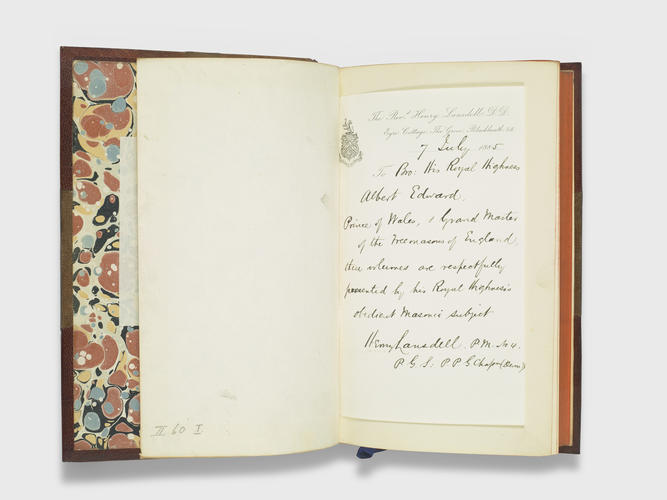 The Revd. Henry Lansdell D.D.
Eyre Cottage, The Grove, Blackheath, S.E.
7 July 1885
To Bro: His Royal Highness
Albert Edward,
Prince of Wales, & Grand Master
of the Freemasons of England,
these volumes are respectfully
presented by his Royal Highness's
obedient Masonic subject
Henry Lansdell. P.M. No 4.
P.G.S; P P G Chapn
II 60 I